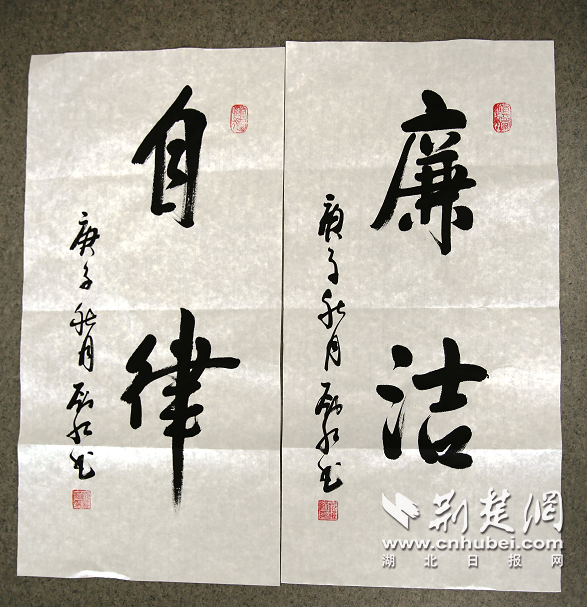 廉洁
庚子秋月
自律
庚子秋月
荆楚网
www.cnhubei.com
湖北日报网